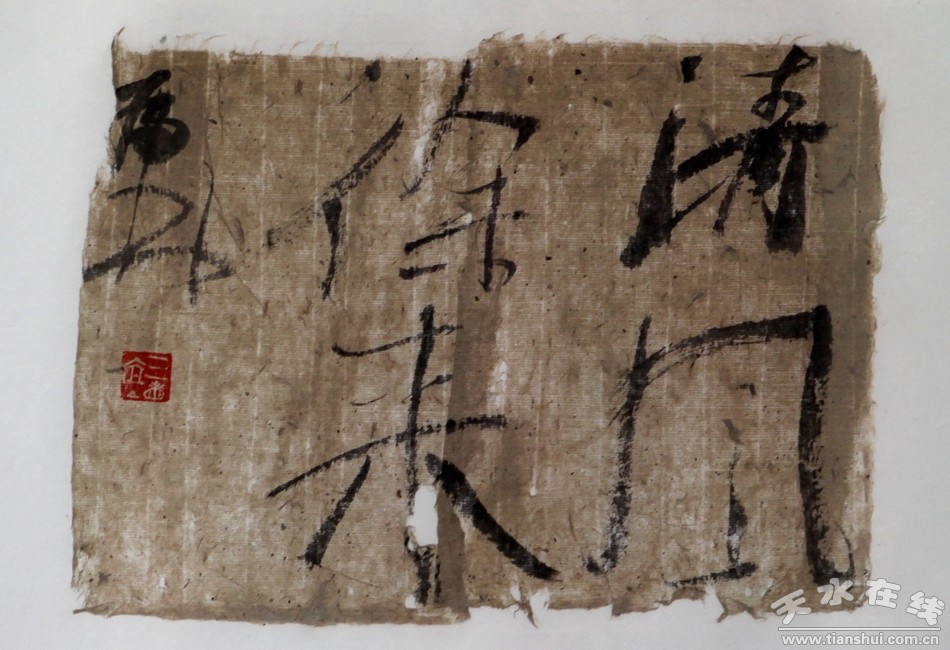 清风
徐来
天水在线
www.tianshui.com.cn